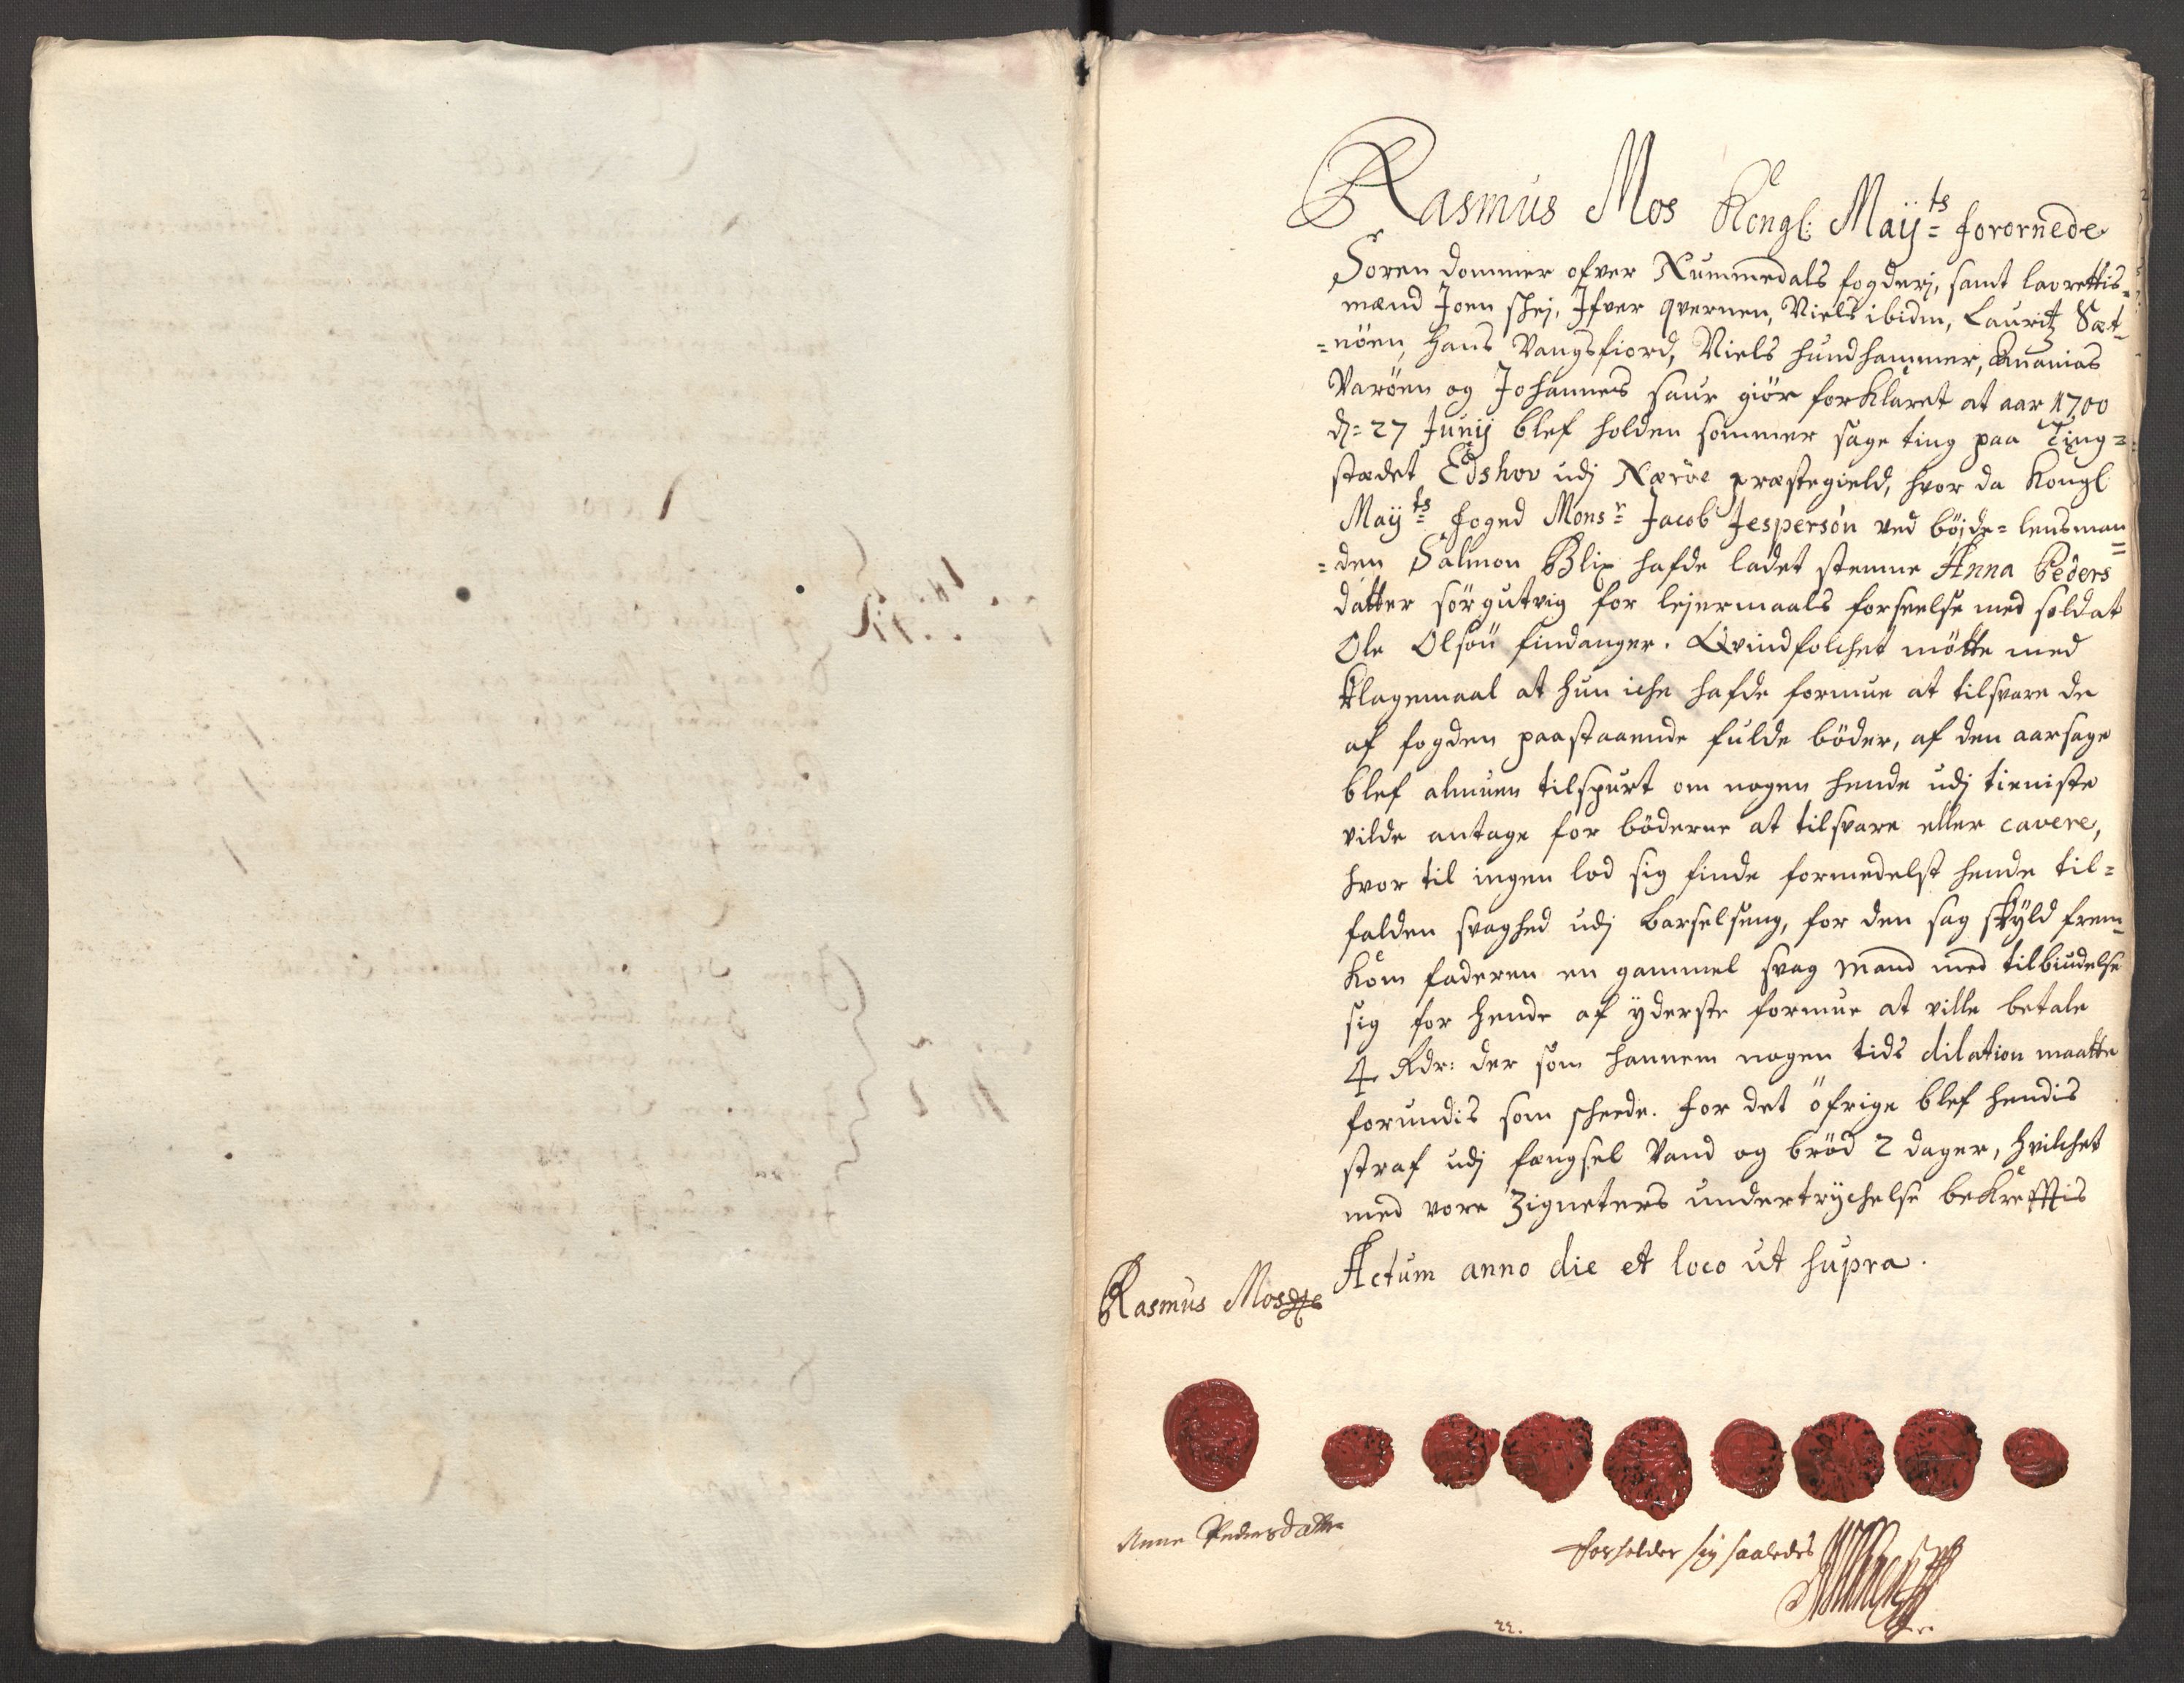 Rasmus Mos Kongl: Maÿ:ts forornede
Soren dommer ofver Nummedals fogderj, samt laurettis=
mænd Joen shej, Ifver qvernen, Niels ibidm, Lauritz Sæt
=nöen, Hans Vangsfiord, Niels hundhammer, Ananias
Varöen og Johannes saur giör forklaret at aar 1700
d: 27 Junij blef holden sommer sage ting paa Ting=
stædet Edshov udj Næröe præstegield, hvor da Kongl
Maÿ:ts foged Monsr: Jacob Jespersön ved böjde=lensman
=den Salmon Blix hafde ladet stemme Anna Peders
datter sörgutvig for lejermaals forseelse med soldat
Ole Olson findanger. Qvindfolchet mötte med
klagemaal at hun iche hafde formue at tilsvare de
af fogden paastaaende fulde böder, af den aarsage
blef almuen tilspurt om nogen hende udj tieniste
vilde antage for böderne at tilsvare eller cavere,
hvor til ingen lod sig finde formedelst hende til=
falden svaghed udj barselseng, for den sag skÿld frem=
kom faderen en gammel svag mand med tilbiudelse
sig for hende af ÿderste formue at ville betale
4 Rdr: der som hannem nogen tids dilation maatte
forundis som scheede. for det öfrige blef hendis
straf udj fængsel Vand og bröd 2 dager, hvilchet
med vore Zigneters undertrÿchelse bekrefftis
Actum anno die et loco ut supra.
Rasmus Mos
Anne Pedersdatter
forholder sig saaledes
22.